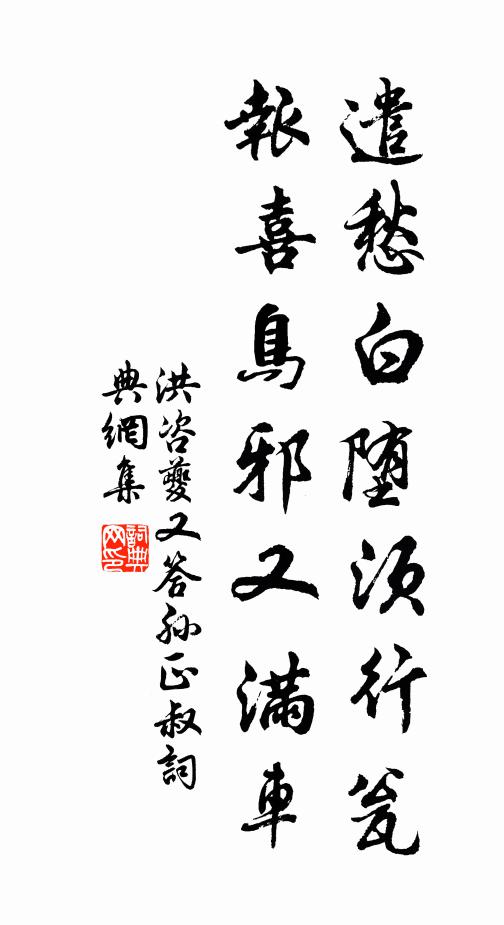 遣愁白堕须行瓮
報喜鳥邪又滿車
洪咨夔又答孙正叔詞
典網集
詞典網印